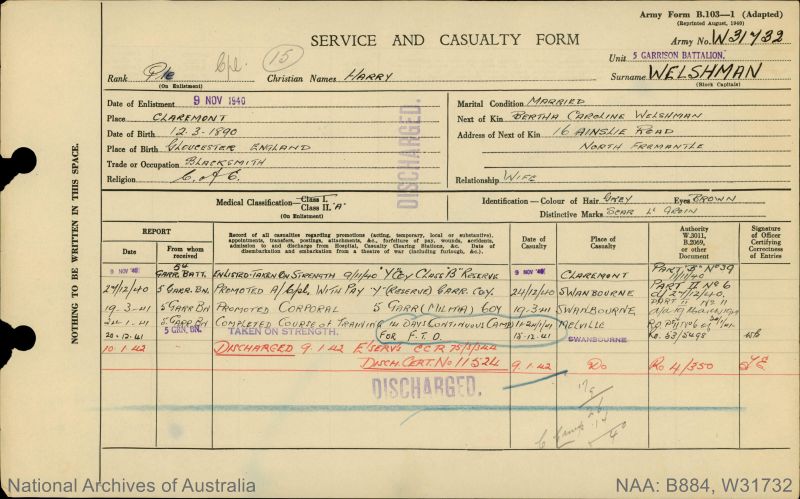 Army Form B.103—1 (Adapted)
(Reprinted August, 1940)
SERVICE AND CASUALTY FORM
Army No. W31732
Unit 5 GARRISON BATTALION.
Rank Pte Cpl. 15 Christian Names HARRY Surname WELSHMAN
(On Enlistment) (Block Capitals)
Date of Enlistment 9 NOV 1940
Place CLAREMONT
Date of Birth 12-3-1890
Place of Birth GLOUCESTER ENGLAND
Trade or Occupation BLACKSMITH
Religion C. of E.
DISCHARGED.
Marital Condition MARRIED
Next of Kin BERTHA CAROLINE WELSHMAN
Address of Next of Kin 16 AINSLIE ROAD
NORTH FREMANTLE
Relationship WIFE
Medical Classification Class I.
Class II. "A"
(On Enlistment)
Identification—Colour of Hair GREY Eyes BROWN
Distinctive Marks SCAR Lt GROIN
NOTHING TO BE WRITTEN IN THIS SPACE.
REPORT
Date
From whom received
Record of all casualties regarding promotions (acting, temporary, local or substantive), appointments, transfers, postings, attachments, &c., forfeiture of pay, wounds, accidents, admission to and discharge from Hospital, Casualty Clearing Stations, &c. Date of disembarkation and embarkation from a theatre of war (including furlough, &c.)
Date of Casualty
Place of Casualty
Authority W.3011, B.2069, or other Document
Signature of Officer Certifying Correctness of Entries
9 NOV 40 5th GARR. BATT. ENLISTED TAKEN ON STRENGTH 9/11/40 "Y" COY CLASS "B" RESERVE 9 NOV 40 CLAREMONT PART "B" No 39
24/12/40 5 GARR. BN. PROMOTED A/Cpl. WITH PAY "Y" (RESERVE) GARR. COY. 24/12/40 SWANBOURNE PART II No 6 d/24/12/40.
19-3-41 5 GARR BN PROMOTED CORPORAL 5 GARR (MILITIA) COY 19-3-41 SWANBOURNE. PART II No 11
5 GARR BN COMPLETED COURSE OF TRAINING 14 DAYS CONTINUOUS CAMP MELVILLE
20-12-41 5 GRN. BN. TAKEN ON STRENGTH. FOR F.T.D. 15-12-41 SWANBOURNE Ro. 53/5498
10.1.42 DISCHARGED 9.1.42
DISCH. CERT. No 11524 9.1.42 Do Ro 4/350
DISCHARGED.
National Archives of Australia
NAA: B884, W31732